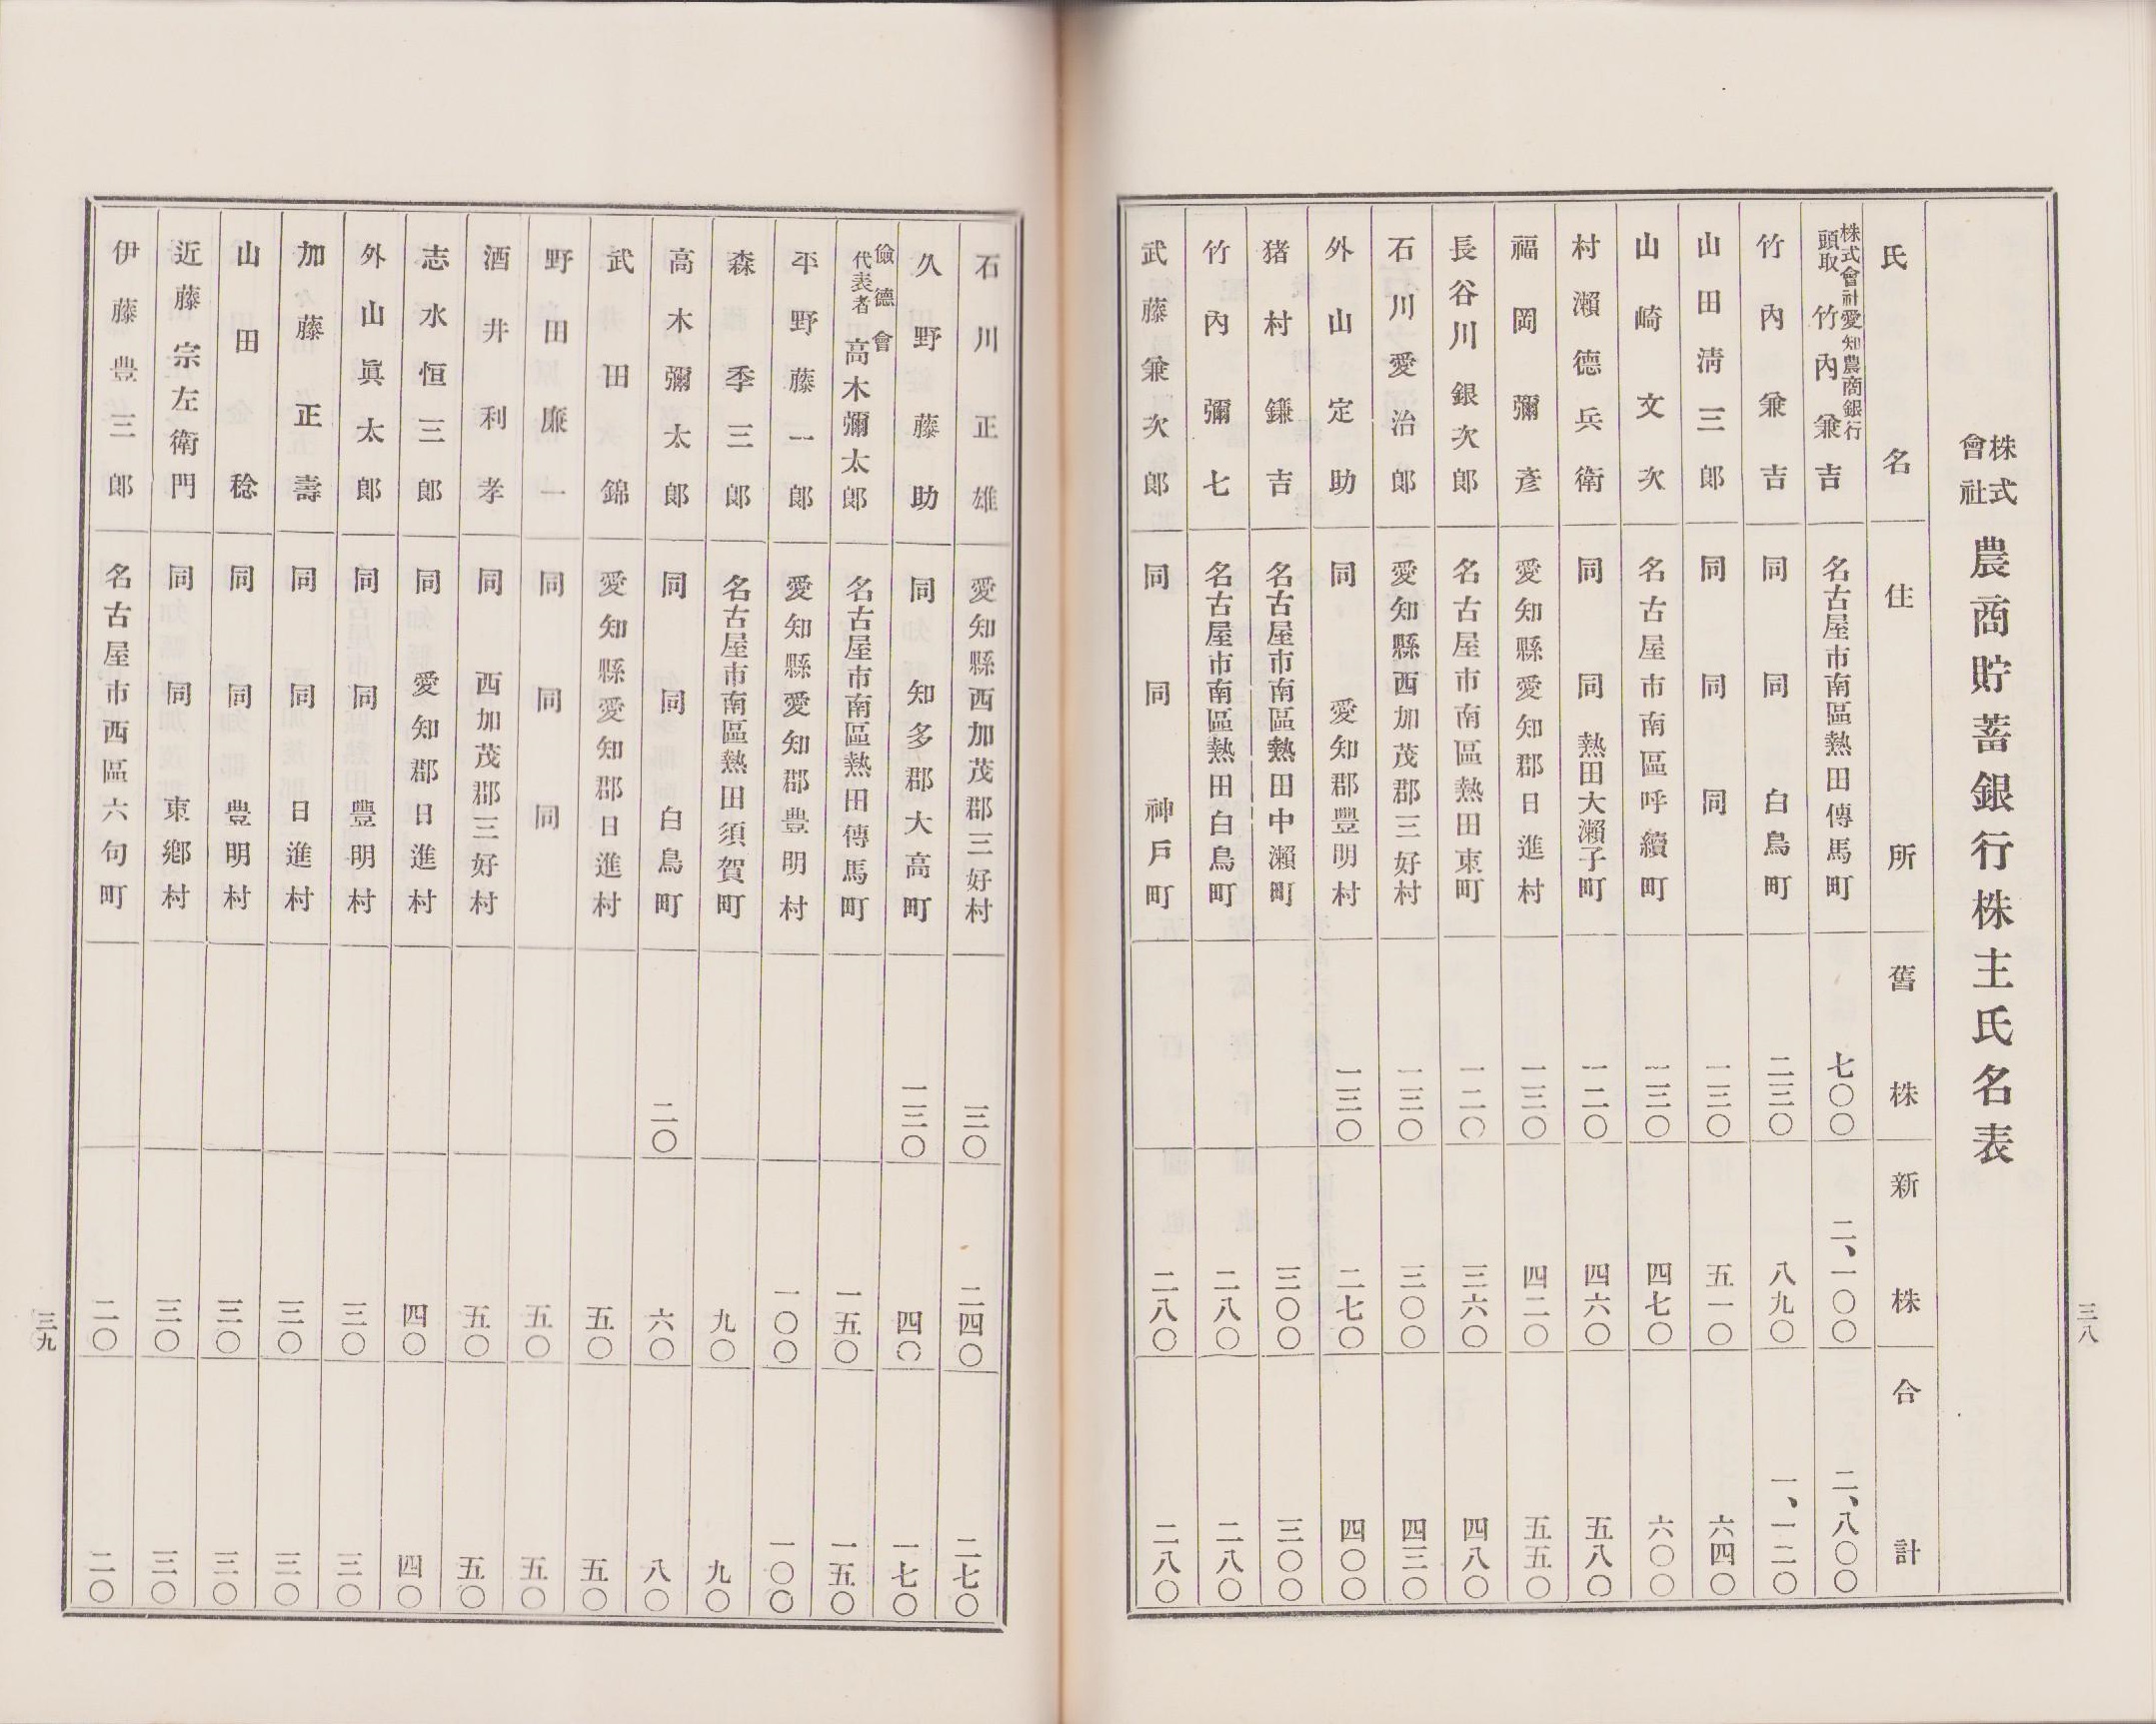 株式會社 農商貯蓄銀行株主氏名表
氏名 住所 舊株 新株 合計
株式會社愛知農商銀行頭取 竹內兼吉 名古屋市南區熱田傳馬町 七〇〇 二、一〇〇 二、八〇〇
竹內兼吉 同 同 白鳥町 二三〇 八九〇 一、一二〇
山田淸三郎 同 同 同 一三〇 五一〇 六四〇
山崎文次 名古屋市南區呼續町 一三〇 四七〇 六〇〇
村瀨德兵衛 同 同 熱田大瀨子町 一二〇 四六〇 五八〇
福岡彌彥 愛知縣愛知郡日進村 一三〇 四二〇 五五〇
長谷川銀次郎 名古屋市南區熱田東町 一二〇 三六〇 四八〇
石川愛治郎 愛知縣西加茂郡三好村 一三〇 三〇〇 四三〇
外山定助 同 愛知郡豐明村 一三〇 二七〇 四〇〇
猪村鎌吉 名古屋市南區熱田中瀨町 三〇〇 三〇〇
竹內彌七 名古屋市南區熱田白鳥町 二八〇 二八〇
武藤兼次郎 同 同 神戶町 二八〇 二八〇
三八
石川正雄 愛知縣西加茂郡三好村 三〇 二四〇 二七〇
久野藤助 同 知多郡大高町 一三〇 四〇 一七〇
儉德會代表者 高木彌太郎 名古屋市南區熱田傳馬町 一五〇 一五〇
平野藤一郎 愛知縣愛知郡豊明村 一〇〇 一〇〇
森季三郎 名古屋市南區熱田須賀町 九〇 九〇
高木彌太郎 同 同 白鳥町 二〇 六〇 八〇
武田錦 愛知縣愛知郡日進村 五〇 五〇
野田廉一 同 同 同 五〇 五〇
酒井利孝 同 西加茂郡三好村 五〇 五〇
志水恒三郎 同 愛知郡日進村 四〇 四〇
外山眞太郎 同 同 豐明村 三〇 三〇
加藤正壽 同 同 日進村 三〇 三〇
山田稔 同 同 豊明村 三〇 三〇
近藤宗左衛門 同 同 東鄉村 三〇 三〇
伊藤豊三郎 名古屋市西區六句町 二〇 二〇
三九